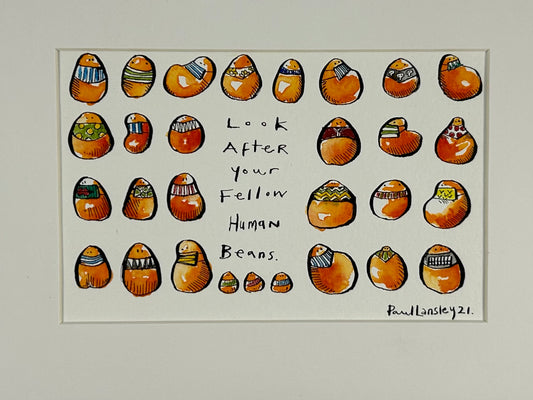 Look
After
Your
Fellow
Human
Beans.
Paul Lansley 21.